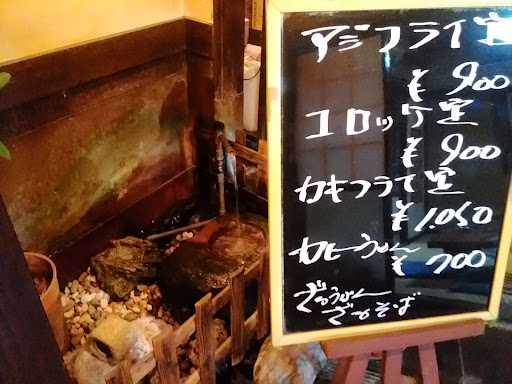 アジフライ定
¥900
コロッケ定
¥900
カキフライ定
¥1,050
カレーうどん
¥700
ざるうどん
ざるそば